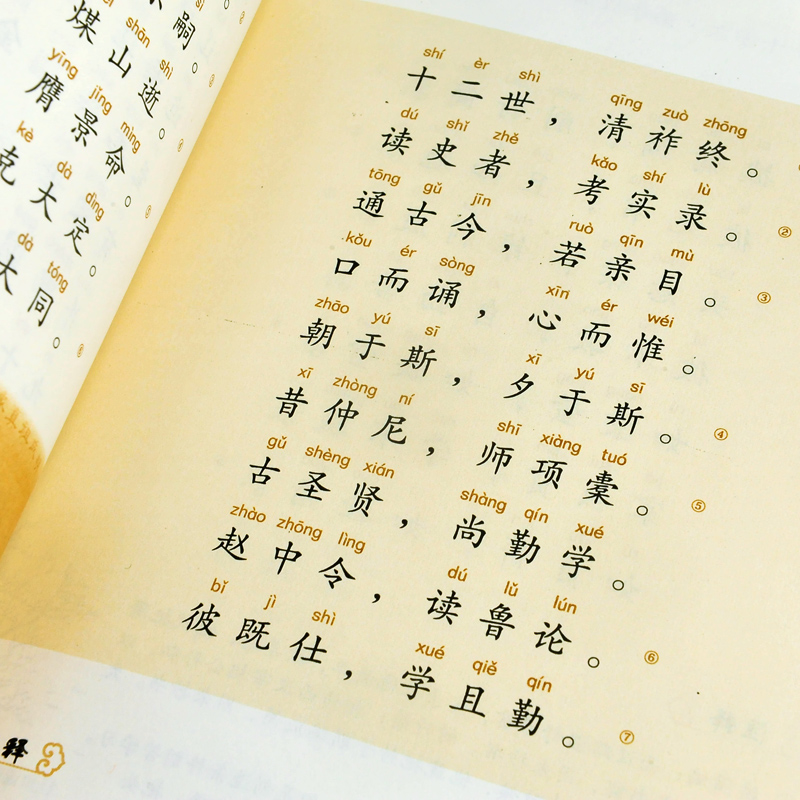 嗣。
sī
煤山逝。
shān shì
yīng jǐng mìng
膺景命。
kè dà dìng
克大定。
dà tóng
大同。
shí èr shì qīng zuò zhōng
十二世，清祚终。
dú shǐ zhě kǎo shí lù
读史者，考实录。②
tōng gǔ jīn ruò qīn mù
通古今，若亲目。③
kǒu ér sòng xīn ér wéi
口而诵，心而惟。
zhāo yú sī xī yú sī
朝于斯，夕于斯。④
xī zhòng ní shī xiàng tuó
昔仲尼，师项橐。⑤
gǔ shèng xián shàng qín xué
古圣贤，尚勤学。
zhào zhōng lìng dú lǔ lún
赵中令，读鲁论。⑥
bǐ jì shì xué qiě qín
彼既仕，学且勤。⑦
释